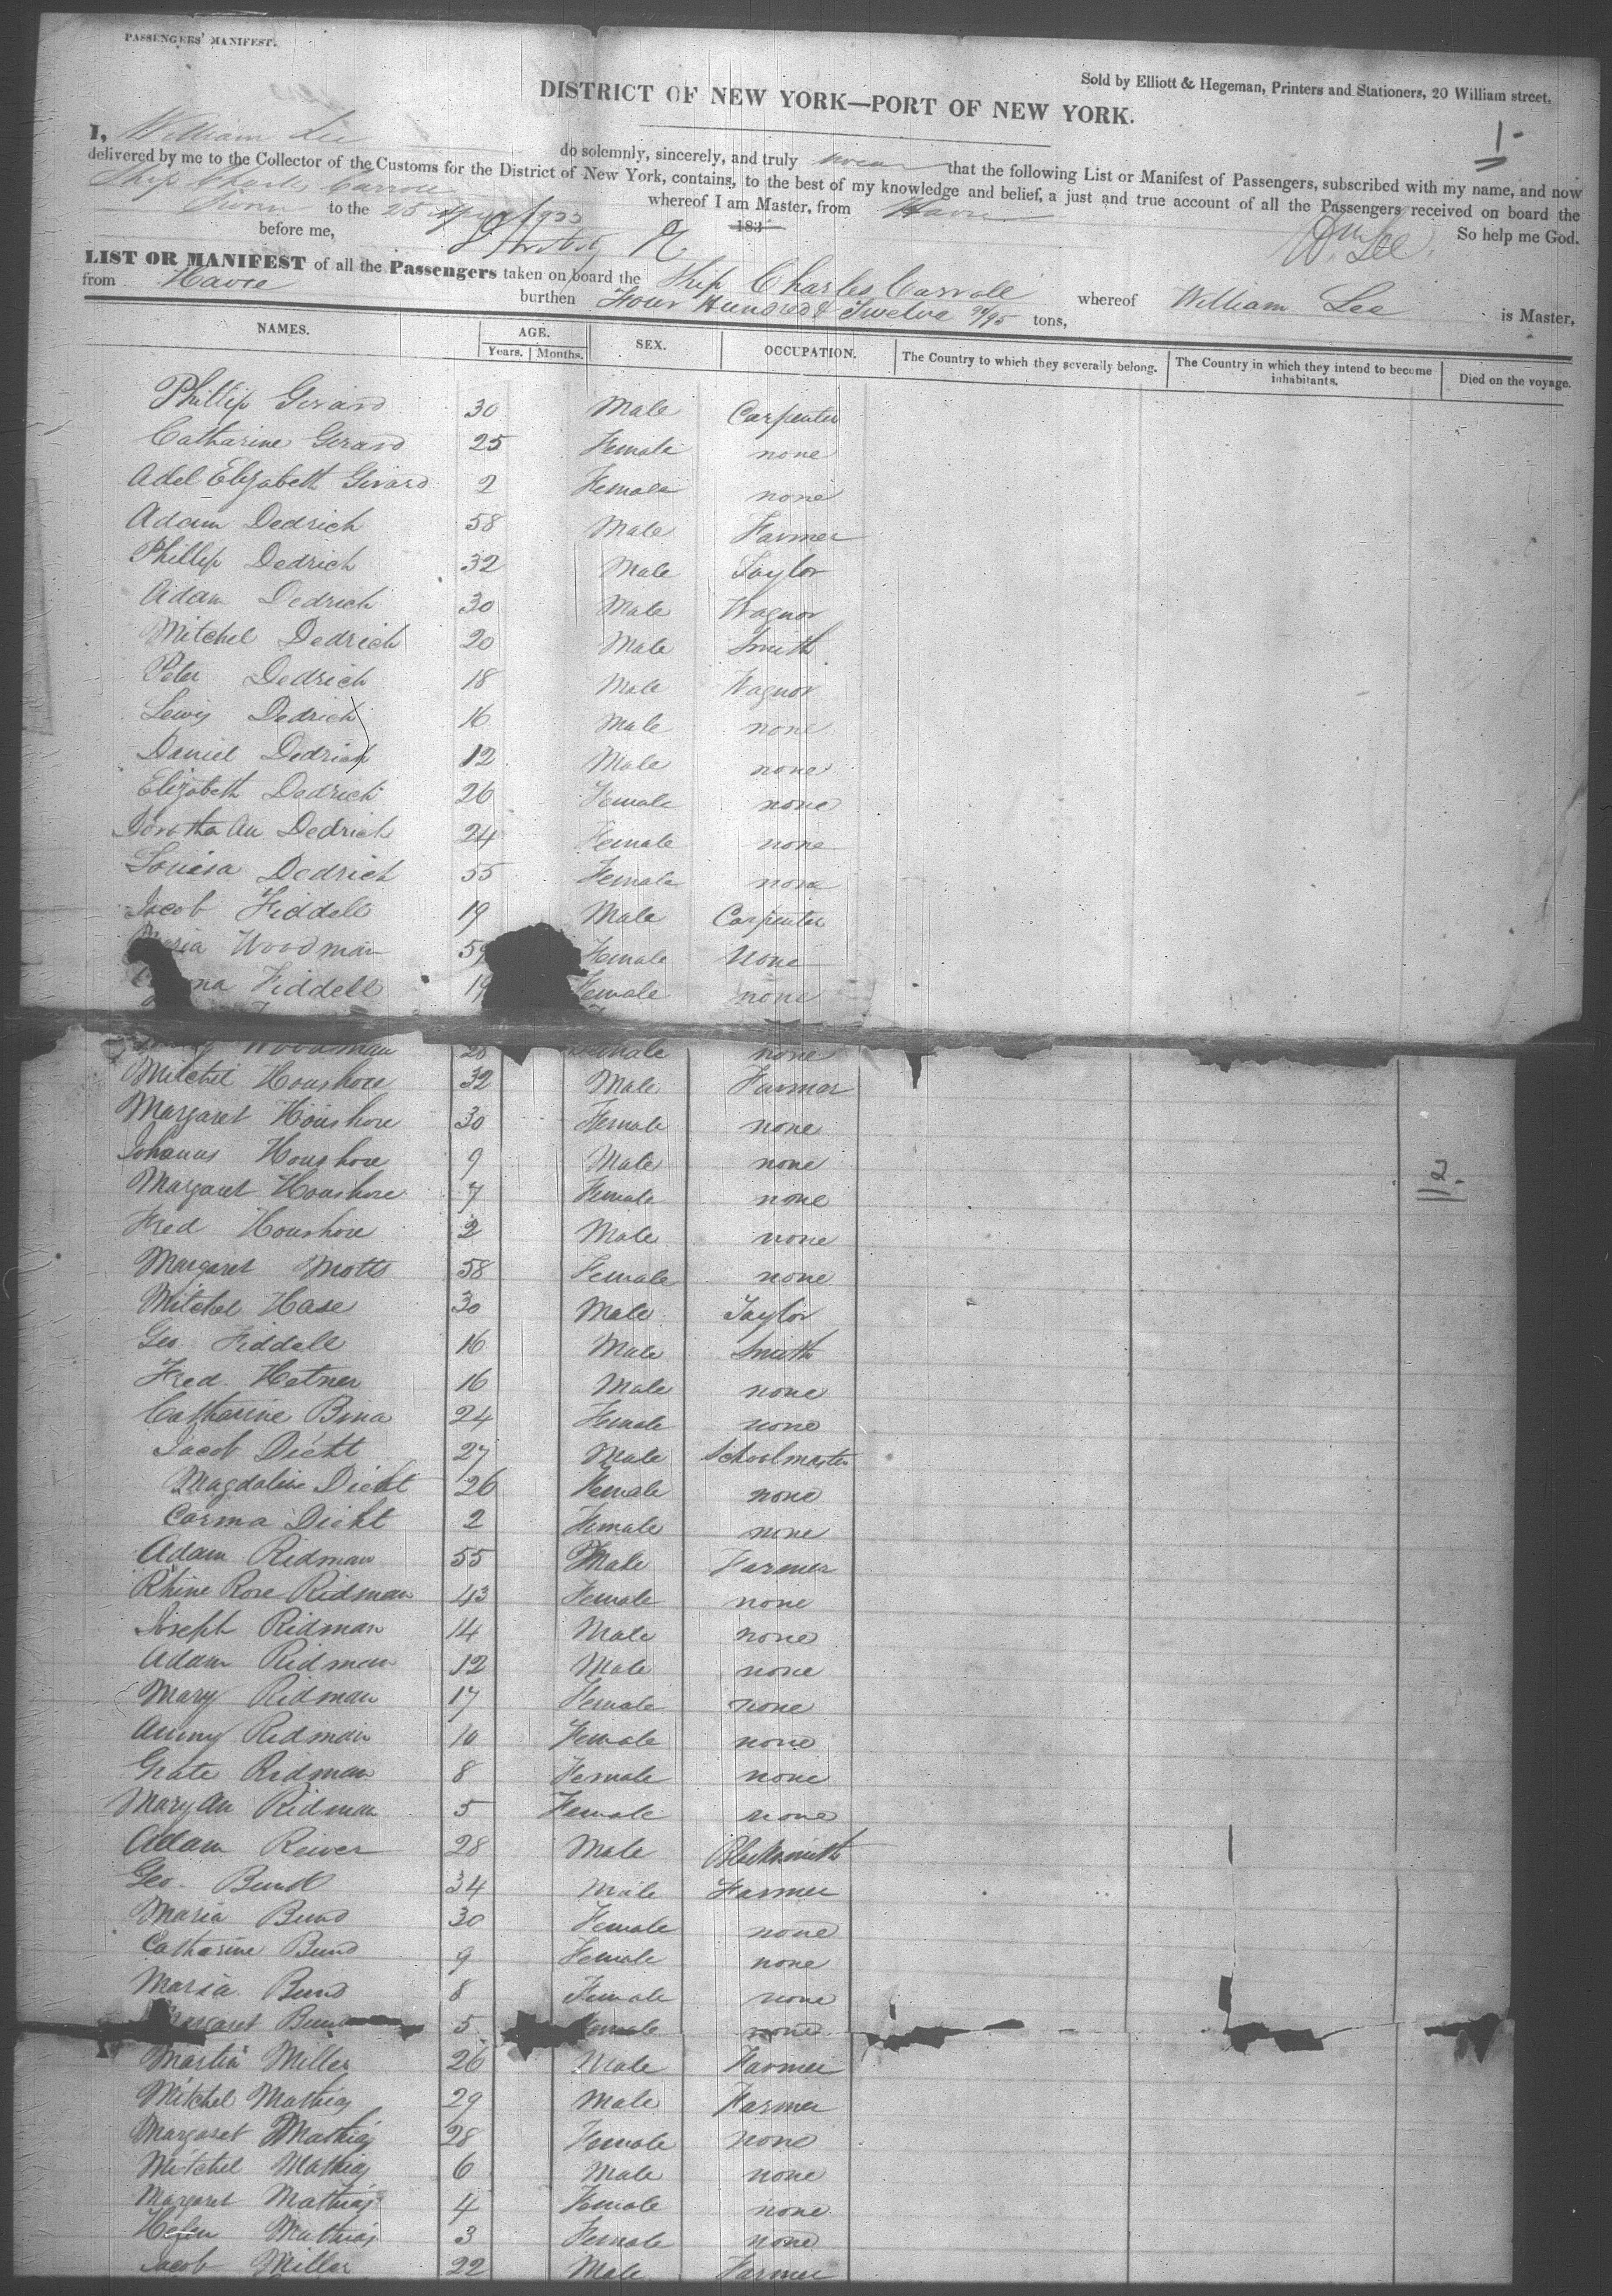 PASSENGERS' MANIFEST.
Sold by Elliott & Hegeman, Printers and Stationers, 20 William street.
DISTRICT OF NEW YORK—PORT OF NEW YORK.
1
I, William Lee do solemnly, sincerely, and truly swear that the following List or Manifest of Passengers, subscribed with my name, and now
delivered by me to the Collector of the Customs for the District of New York, contains, to the best of my knowledge and belief, a just and true account of all the Passengers received on board the
Ship Charles Carroll whereof I am Master, from Havre
Sworn to the 25 April 1833 183 Wm Lee. So help me God.
before me,
LIST OR MANIFEST of all the Passengers taken on board the Ship Charles Carroll whereof William Lee is Master,
from Havre burthen Four Hundred & Twelve 94/95 tons,
NAMES. AGE. SEX. OCCUPATION. The Country to which they severally belong. The Country in which they intend to become inhabitants. Died on the voyage.
Years. Months.
Phillip Gerard 30 Male Carpenter
Catharine Gerard 25 Female none
Adel Elizabeth Gerard 2 Female none
Adam Dedrich 58 Male Farmer
Phillip Dedrich 32 Male Taylor
Adam Dedrich 30 Male Wagnor
Mitchel Dedrich 20 Male Smith
Peter Dedrich 18 Male Wagnor
Lewis Dedrich 16 Male none
Daniel Dedrich 12 Male none
Elizabeth Dedrich 26 Female none
Dorotha An Dedrich 24 Female none
Louisa Dedrich 55 Female none
Jacob Fiddell 19 Male Carpenter
Maria Woodman 59 Female None
Fiddell 19 Female none
Woodman 28 Female none
Mitchel Houshore 32 Male Farmer
Margaret Houshore 30 Female none
Johanus Houshore 9 Male none
Margaret Houshore 7 Female none
2
Fred Houshore 2 Male none
Margaret Motts 58 Female none
Mitchel Hase 30 Male Taylor
Geo. Fiddell 16 Male Smith
Fred. Hetner 16 Male none
Catharine Bina 24 Female none
Jacob Dicht 27 Male Schoolmaster
Magdaline Dicht 26 Female none
Carma Dicht 2 Female none
Adam Ridman 55 Male Farmer
Rhine Rose Ridman 43 Female none
Joseph Ridman 14 Male none
Adam Ridman 12 Male none
Mary Ridman 17 Female none
Anny Ridman 10 Female none
Grate Ridman 8 Female none
Mary An Ridman 5 Female none
Adam Reiver 28 Male Blacksmith
Geo. Bund 34 Male Farmer
Maria Bund 30 Female none
Catharine Bund 9 Female none
Maria Bund 8 Female none
Margaret Bund 5 Female none
Martin Miller 26 Male Farmer
Mitchel Mathias 29 Male Farmer
Margaret Mathias 28 Female none
Mitchel Mathias 6 Male none
Margaret Mathias 4 Female none
Helen Mathias 3 Female none
Jacob Miller 22 Male Farmer